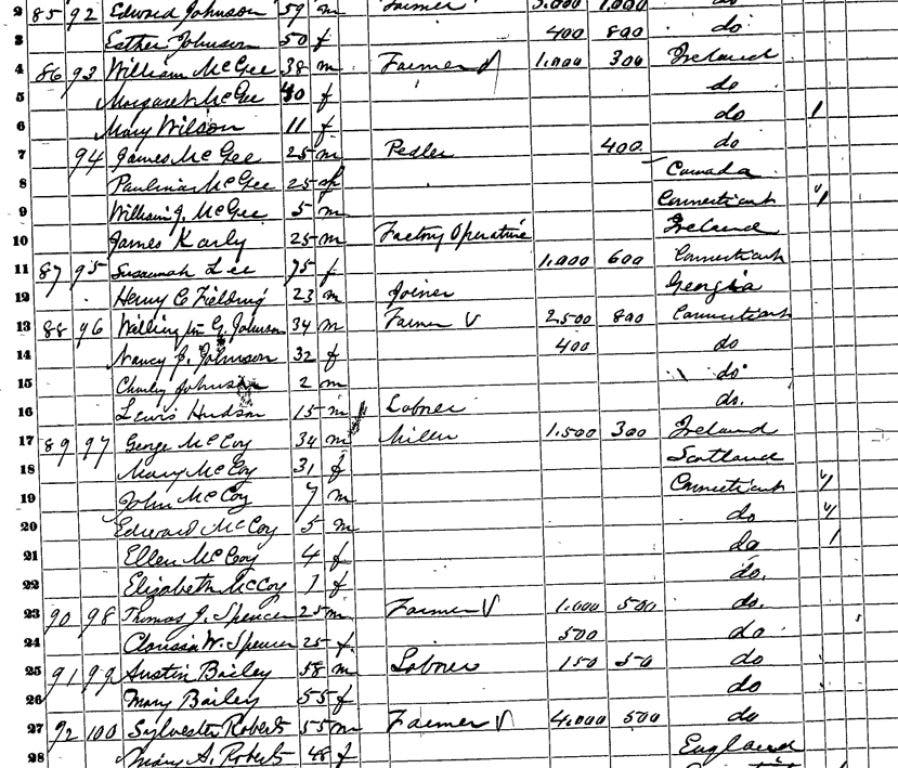 2 85 92 Edward Johnson 59 m Farmer 3.000 1.000 do
3 Esther Johnson 50 f 400 800 do
4 86 93 William McGee 38 m Farmer √ 1.000 300 Ireland
5 Margaret McGee 40 f do
6 Mary Wilson 11 f do 1
7 94 James McGee 25 m Pedler 400 do
8 Paulina McGee 25 f Canada
9 William J. McGee 5 m Connecticut 1
10 James Karly 25 m Factory Operative Ireland
11 87 95 Susannah Lee 75 f 1.000 600 Connecticut
12 Henry C Fielding 23 m Joiner Georgia
13 88 96 G. Johnson 34 m Farmer √ 2.500 800 Connecticut
14 Nancy J. Johnson 32 f 400 do
15 Charley Johnson 2 m do
16 Lewis Hudson 15 m Labner do.
17 89 97 George McCoy 34 m Miller 1.500 300 Ireland
18 Mary McCoy 31 f Scotland
19 John McCoy 7 m Connecticut 1
20 Edward McCoy 5 m do 1
21 Ellen McCoy 4 f do 1
22 Elizabeth McCoy 1 f do.
23 90 98 Thomas J. Spencer 25 m Farmer √ 1.000 500 do.
24 Clarissa W. Spencer 25 f 500 do
25 91 99 Austin Bailey 58 m Labner 150 50 do
26 Mary Bailey 55 f do
27 92 100 Sylvester Roberts 55 m Farmer √ 4.000 500 do
28 Mary A. Roberts 48 f England